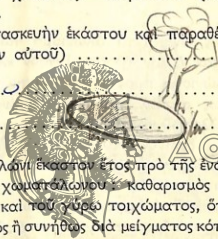 τασκευὴν ἑκάστου καὶ παραθέ
ν αὐτοῦ)
λων ἕκαστον ἔτος πρὸ τῆς ἐνά
χωματάλωνου : καθαρισμὸς
καὶ τοῦ γύρω τοιχώματος, ὅτ
ς ἢ συνήθως διὰ μείγματος κό